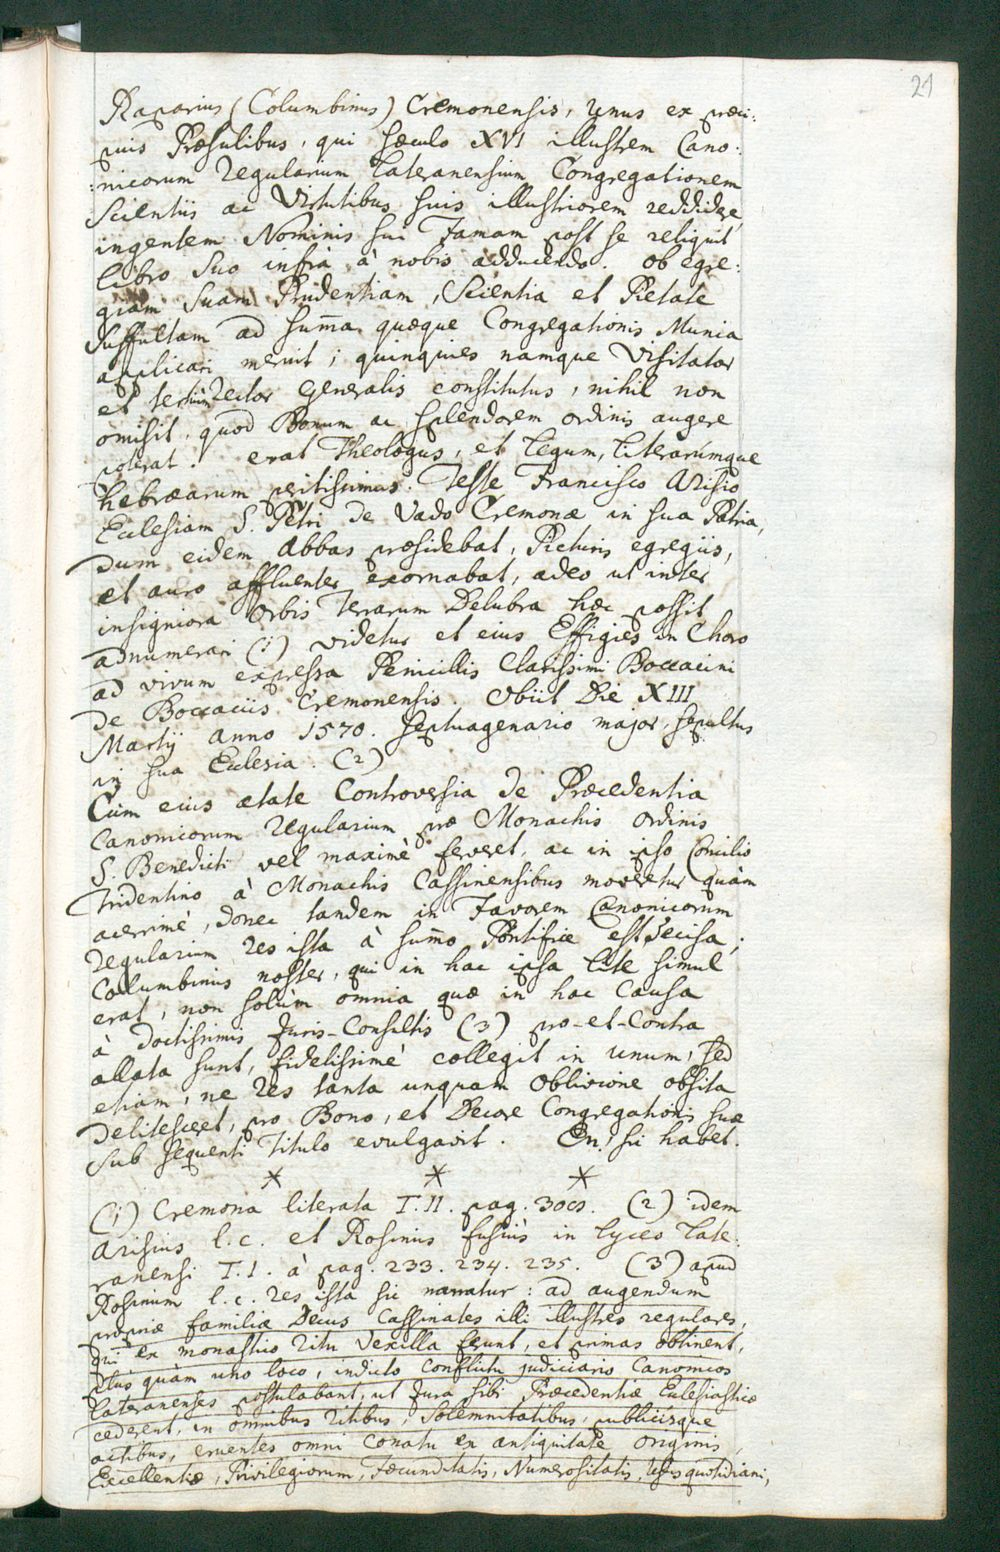 21
Raparius (Columbinus) Cremonensis, Unus ex præci:
puis Præsulibus, qui sæculo XVI illustrem Cano:
:nicorum regularium Lateranensium Congregationem
Scientiis ac Virtutibus suis illustriorem reddidere
ingentem Nominis sui Famam post se reliquit
libro suo infrà à nobis adducendo. Ob egre:
giam suam Prudentiam, Scientia et Pietate
suffultam ad sum̄a quæque Congregationis Munia
applicari meruit; quinquies namque Visitator
et tertiùm rector Generalis constitutus, nihil non
omisit, quod Bonum ac splendorem ordinis augere
poterat. erat Theologus, et Legum, Literarúmque
hebræarum peritissimus. Teste Francisco Arisio
Ecclesiam S. Petri de Vado Cremonæ in sua Patria,
dum eidem Abbas præsidebat, Picturis egregiis,
et auro affluenter exornabat, adeo ut inter
insigniora Orbis Terrarum Delubra hæc possit
adnumerari (1) videtur et eius Effigies in Choro
ad vivum expressa Penicillis Clarissimi Boccacini
de Boccaciis Cremonensis. Obiit Die XIII
Martij anno 1570. septuagenario major, sepultus
in sua Ecclesia. (2)
Cùm eius ætate Controversia de Præcedentia
Canonicorum regularium præ Monachis ordinis
S. Benedicti vel maximè ferveret, ac in ipso Concilio
Tridentino à Monachis Cassinensibus moveretur quàm
acerrimè, donec tandem in Favorem Canonicorum
regularium res ista à sum̄o Pontifice est decisa;
Columbinus noster, qui in hac ipsa lite simul
erat, non solùm omnia quæ in hac Causa
à doctissimis Juris-Consultis (3) pro-et-Contra
allata sunt, fidelissimè collegit in unum, sed
etiam, ne res tanta unquam Oblivione obsita
delitesceret, pro Bono, et Decore Congregationis suæ
sub sequenti Titulo evulgavit. En! sic habet.
* * *
(1) Cremona literata T. II. pag. 300. (2) idem
Arisius l. c. et Rosinus fusiùs in Lyceo Late:
ranensi T. I. à pag. 233. 234. 235. (3) apud
Rosinum l. c. res ista sic narratur: ad augendum
propriæ familiæ Decus Cassinates illi illustres regulares,
qui ex monastico ritu Vexilla ferunt, et primas obtinent,
plus quàm uno loco, indicto conflictu judiciario Canonicos
Lateranenses postulabant, ut Jura sibi Præcedentiæ Ecclesiasticæ
cederent, in omnibus ritibus, solemnitatibus, publicisque
actibus, eruentes omni conatu ex antiquitate originis,
Excellentiæ, Privilegiorum, Fæcunditatis, Numerositatis, usus quotidiani,